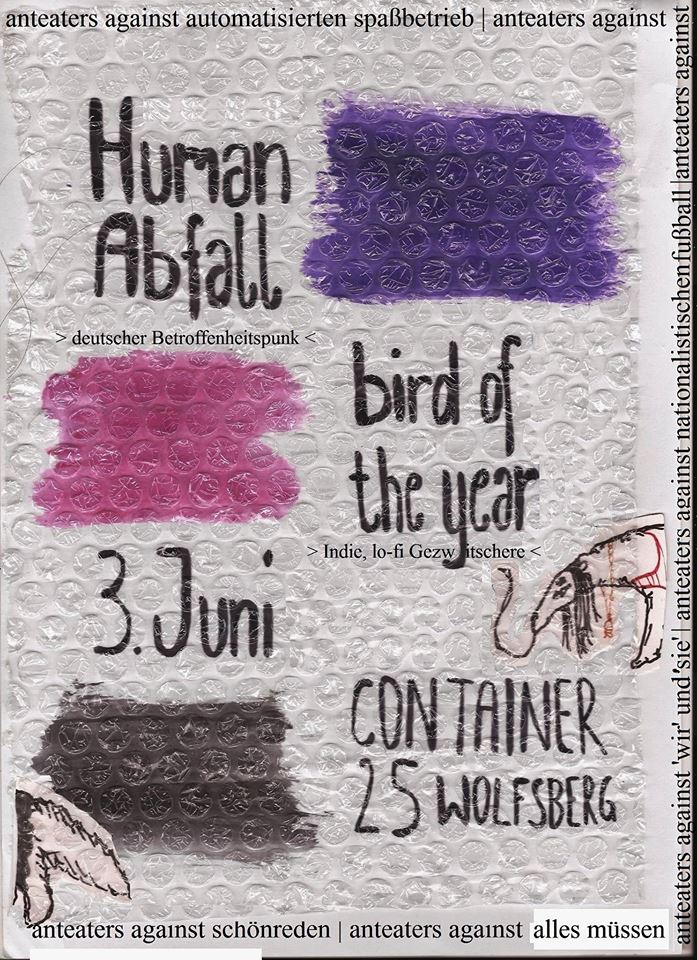 anteaters against automatisierten spaßbetrieb | anteaters against
Human
Abfall
> deutscher Betroffenheitspunk <
bird of
the year
> Indie, lo-fi Gezwitschere <
3. Juni
CONTAINER
25 WOLFSBERG
anteaters against schönreden | anteaters against alles müssen
anteaters against 'wir' und 'sie' | anteaters against nationalistischen fußball | anteaters against